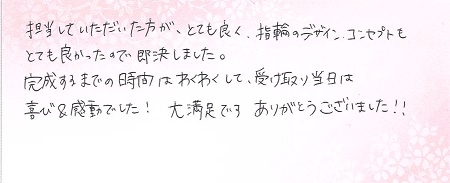 担当していただいた方が、とても良く、指輪のデザイン、コンセプトも
とても良かったので即決しました。
完成するまでの時間はわくわくして、受け取り当日は
喜び&感動でした! 大満足です ありがとうございました!!